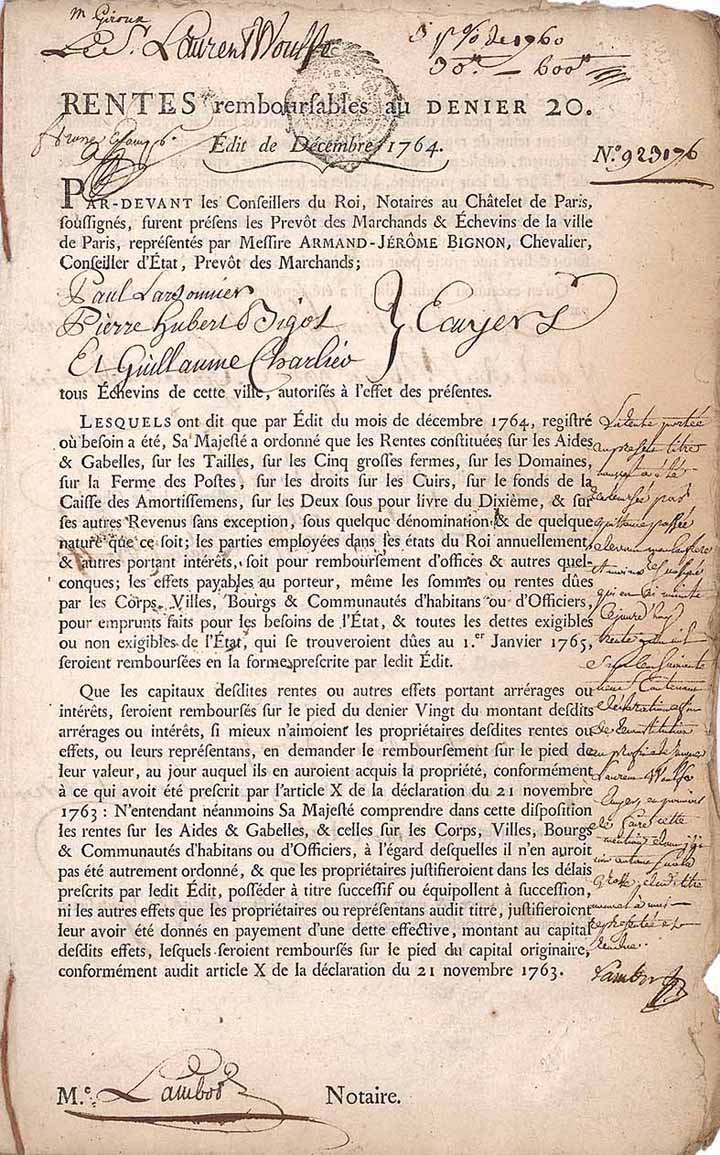 m Giroux
Le S. Laurent Woulfe
de 1760
30 — 600
RENTES remboursables au DENIER 20.
Édit de Décembre 1764.
N.º 923176
PAR-DEVANT les Conseillers du Roi, Notaires au Châtelet de Paris,
soussignés, furent présens les Prevôt des Marchands & Échevins de la ville
de Paris, représentés par Messire ARMAND-JÉRÔME BIGNON, Chevalier,
Conseiller d'État, Prevôt des Marchands;
Paul Larsonnier
Pierre hubert Bigot } Ecuyers
Et Guillaume Charlier
tous Échevins de cette ville, autorisés à l'effet des présentes.
LESQUELS ont dit que par Édit du mois de décembre 1764, registré
où besoin a été, Sa Majesté a ordonné que les Rentes constituées sur les Aides
& Gabelles, sur les Tailles, sur les Cinq grosses fermes, sur les Domaines,
sur la Ferme des Postes, sur les droits sur les Cuirs, sur le fonds de la
Caisse des Amortissemens, sur les Deux sous pour livre du Dixième, & sur
ses autres Revenus sans exception, sous quelque dénomination & de quelque
nature que ce soit; les parties employées dans les états du Roi annuellement
& autres portant intérêts, soit pour remboursement d'offices & autres quel-
conques; les effets payables au porteur, même les sommes ou rentes dûes
par les Corps, Villes, Bourgs & Communautés d'habitans ou d'Officiers,
pour emprunts faits pour les besoins de l'État, & toutes les dettes exigibles
ou non exigibles de l'État, qui se trouveroient dûes au 1.er Janvier 1765,
seroient remboursées en la forme prescrite par ledit Édit.
Que les capitaux desdites rentes ou autres effets portant arrérages ou
intérêts, seroient remboursés sur le pied du denier Vingt du montant desdits
arrérages ou intérêts, si mieux n'aimoient les propriétaires desdites rentes ou
effets, ou leurs représentans, en demander le remboursement sur le pied de
leur valeur, au jour auquel ils en auroient acquis la propriété, conformément
à ce qui avoit été prescrit par l'article X de la déclaration du 21 novembre
1763 : N'entendant néanmoins Sa Majesté comprendre dans cette disposition
les rentes sur les Aides & Gabelles, & celles sur les Corps, Villes, Bourgs
& Communautés d'habitans ou d'Officiers, à l'égard desquelles il n'en auroit
pas été autrement ordonné, & que les propriétaires justifieroient dans les délais
prescrits par ledit Édit, posséder à titre successif ou équipollent à succession,
ni les autres effets que les propriétaires ou représentans audit titre, justifieroient
leur avoir été donnés en payement d'une dette effective, montant au capital
desdits effets, lesquels seroient remboursés sur le pied du capital originaire,
conformément audit article X de la déclaration du 21 novembre 1763.
titre
par
quittance passée
minute
Cejourd'huy
trente
Sept Cent soixante
neuf Contenant
declaration
Laurent Woulfe
Ecuyer
de faire cette
mention
Grosse dud. titre
Lambot
M.e Lambot Notaire.